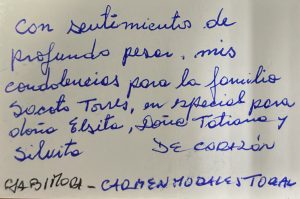 Con sentimientos de
profundo pesar, mis
condolencias para la familia
Sacoto Torres, en especial para
doña Elsita, Doña Tatiana y
Silvita DE CORAZÓN
- CARMEN MORALES TORAL